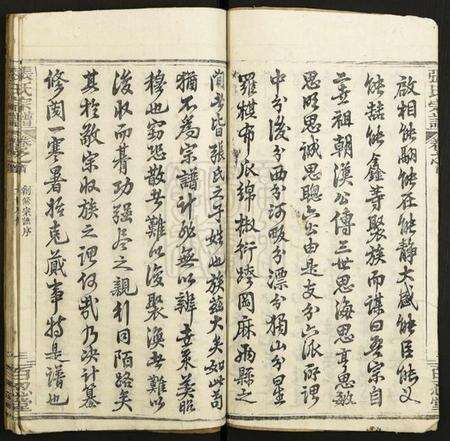 張氏宗譜 卷之首
啟相能嗣能在能靜大盛能臣能文
能喆能鑫等聚族而謀曰吾宗自
Ⅱ祖朝漢公傳三世思海思亨思敬
思明思誠思聰六公由是支分六派所謂
中分後分西分河畈分漂分獨山分星
羅棋布瓜綿椒衍跨岡麻兩縣之
間者皆張氏之子姓也族茲大矣如此苟
猶不為宗譜計非無以辨世系美昭
穆也竊恐散者難以復聚渙者難以
復收而朞功强尽之親引同陌路矣
其於敬宗收族之誼何哉乃決計纂
修閱一寒暑始克蕆事特是譜也
張氏宗譜 卷之首
創修宗譜序
百忍堂
百忍堂